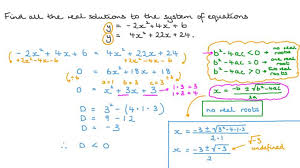 Find all the real solutions to the system of equations
y = -2x² + 4x + 6
y = 4x² + 22x + 24.
-2x² + 4x + 6 = 4x² + 22x + 24
+2x² -4x -6 +2x² -4x -6
0 = 6x² + 18x + 18
(÷6) (÷6)
a=1 b=3 c=3
0 = x² + 3x + 3
1·3=3
1+3=4
D = 3² - (4·1·3)
D = 9 - 12
D = -3
∴ D < 0
b² - 4ac < 0 → no real roots
b² - 4ac = 0 → one real root
b² - 4ac > 0 → two real roots
x = -b ± √b² - 4ac / 2a
no real roots
x = -3 ± √3² - 4·1·3 / 2·1
x = -3 ± √-3 / 2
√-3
undefined